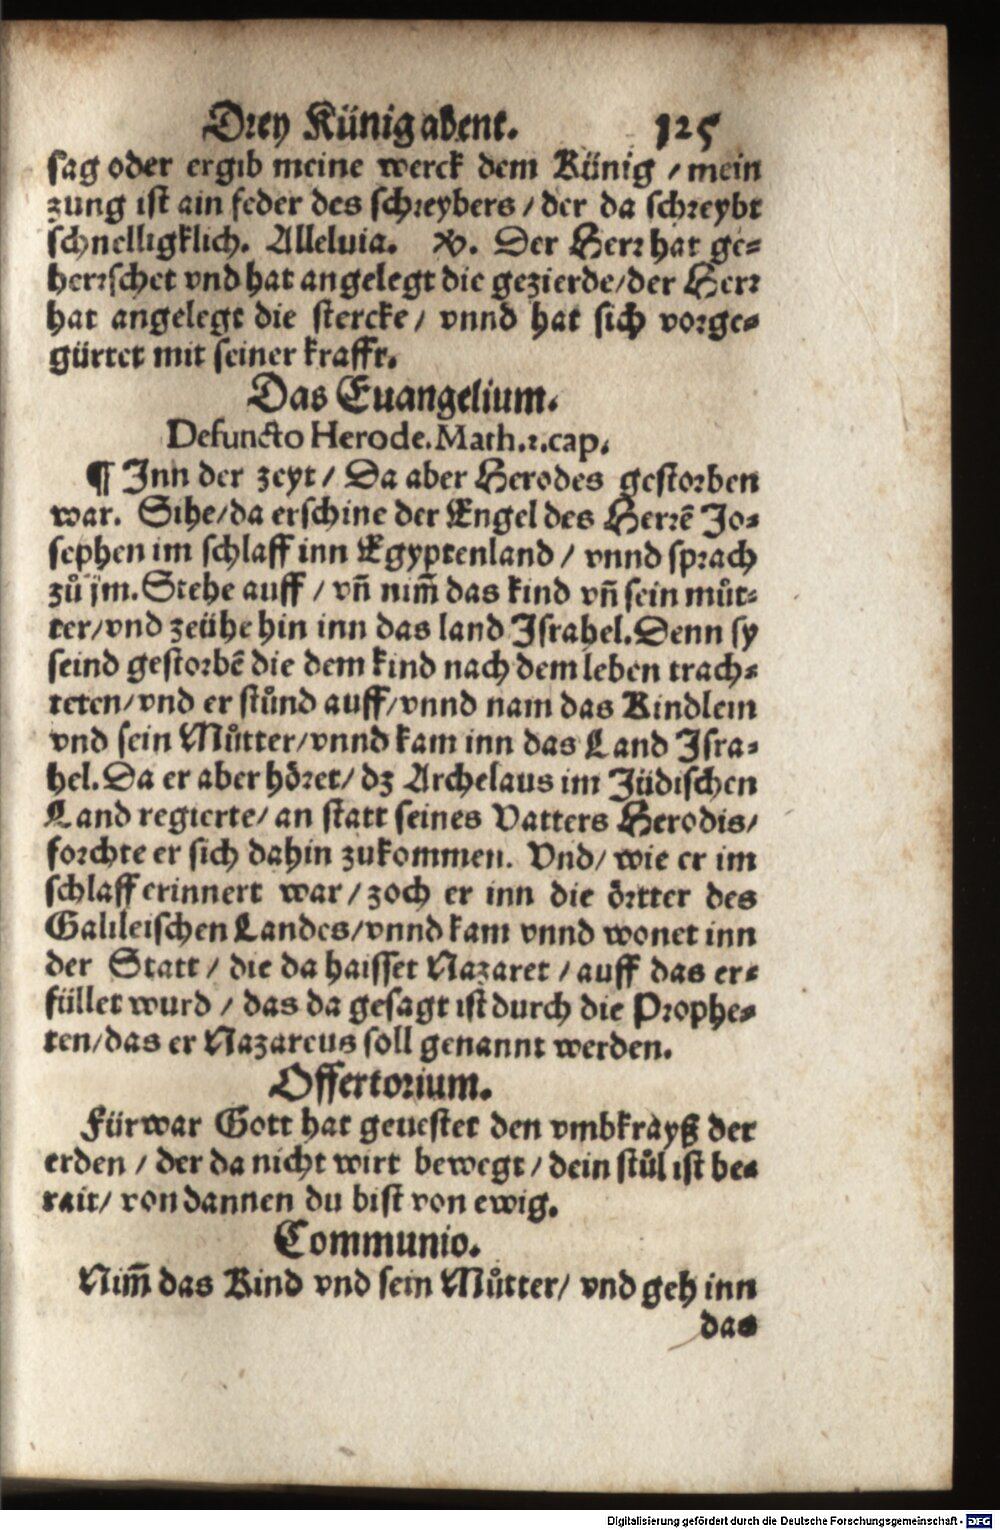 Drey Künig abent. 125
sag oder ergib meine werck dem Künig / mein
zung ist ain feder des schreybers / der da schreybt
schnelligklich. Alleluia. ℣. Der Herr hat ge⸗
herrschet vnd hat angelegt die gezierde/der Herr
hat angelegt die stercke / vnnd hat sich vorge⸗
gürtet mit seiner krafft.
Das Euangelium.
Defuncto Herode. Math. 2. cap.
¶ Inn der zeyt / Da aber Herodes gestorben
war. Sihe/da erschine der Engel des Herrē Jo⸗
sephen im schlaff inn Egyptenland / vnnd sprach
zů jm. Stehe auff / vñ nim̄ das kind vñ sein můt⸗
ter/vnd zeühe hin inn das land Israhel. Denn sy
seind gestorbē die dem kind nach dem leben trach⸗
teten/vnd er stůnd auff/vnnd nam das Kindlein
vnd sein Můtter/vnnd kam inn das Land Isra⸗
hel. Da er aber höret/ dz Archelaus im Jüdischen
Land regierte/ an statt seines Vatters Herodis/
forchte er sich dahin zukommen. Vnd/ wie er im
schlaff erinnert war / zoch er inn die örtter des
Galileischen Landes/vnnd kam vnnd wonet inn
der Statt / die da haisset Nazaret / auff das er⸗
füllet wurd / das da gesagt ist durch die Prophe⸗
ten/das er Nazareus soll genannt werden.
Offertorium.
Fürwar Gott hat geuestet den vmbkrayß der
erden / der da nicht wirt bewegt / dein stůl ist be⸗
rait/ von dannen du bist von ewig.
Communio.
Nim̄ das Kind vnd sein Můtter/ vnd geh inn
das
Digitalisierung gefördert durch die Deutsche Forschungsgemeinschaft - DFG